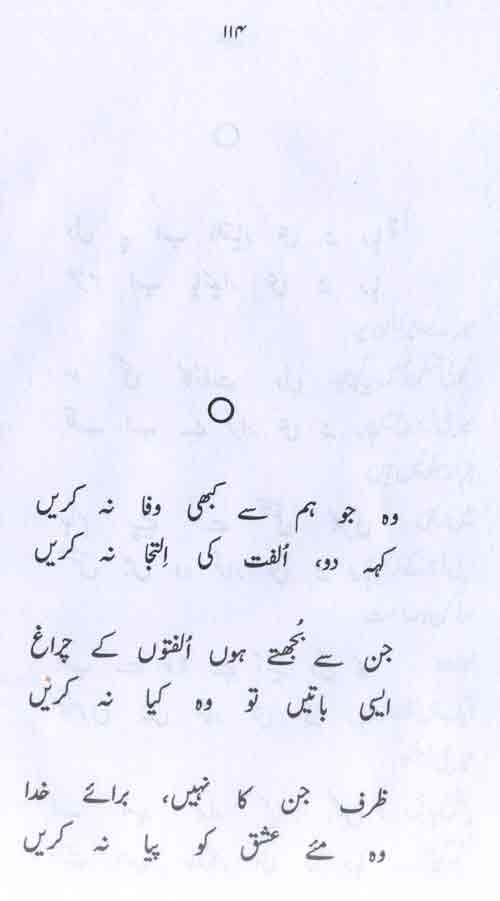 ۱۱۴
وہ جو ہم سے کبھی وفا نہ کریں
کہہ دو، اُلفت کی اِلتجا نہ کریں
جن سے بُجھتے ہوں اُلفتوں کے چراغ
ایسی باتیں تو وہ کیا نہ کریں
ظرف جن کا نہیں، برائے خدا
وہ مئے عشق کو پیا نہ کریں